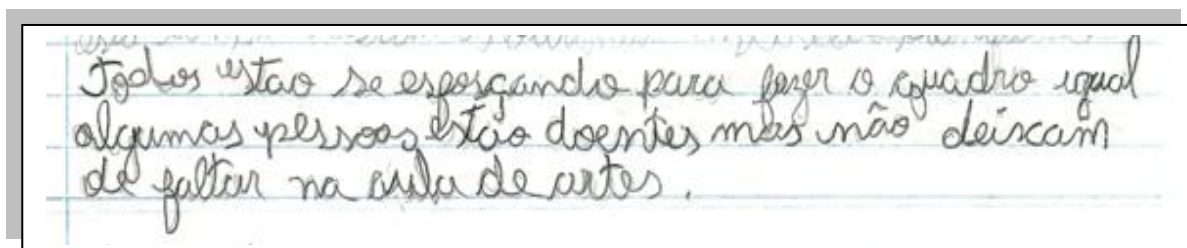 Todos estao se esforçando para fazer o quadro igual
algumas pessoas estão doentes mas não deixam
de faltar na aula de artes.